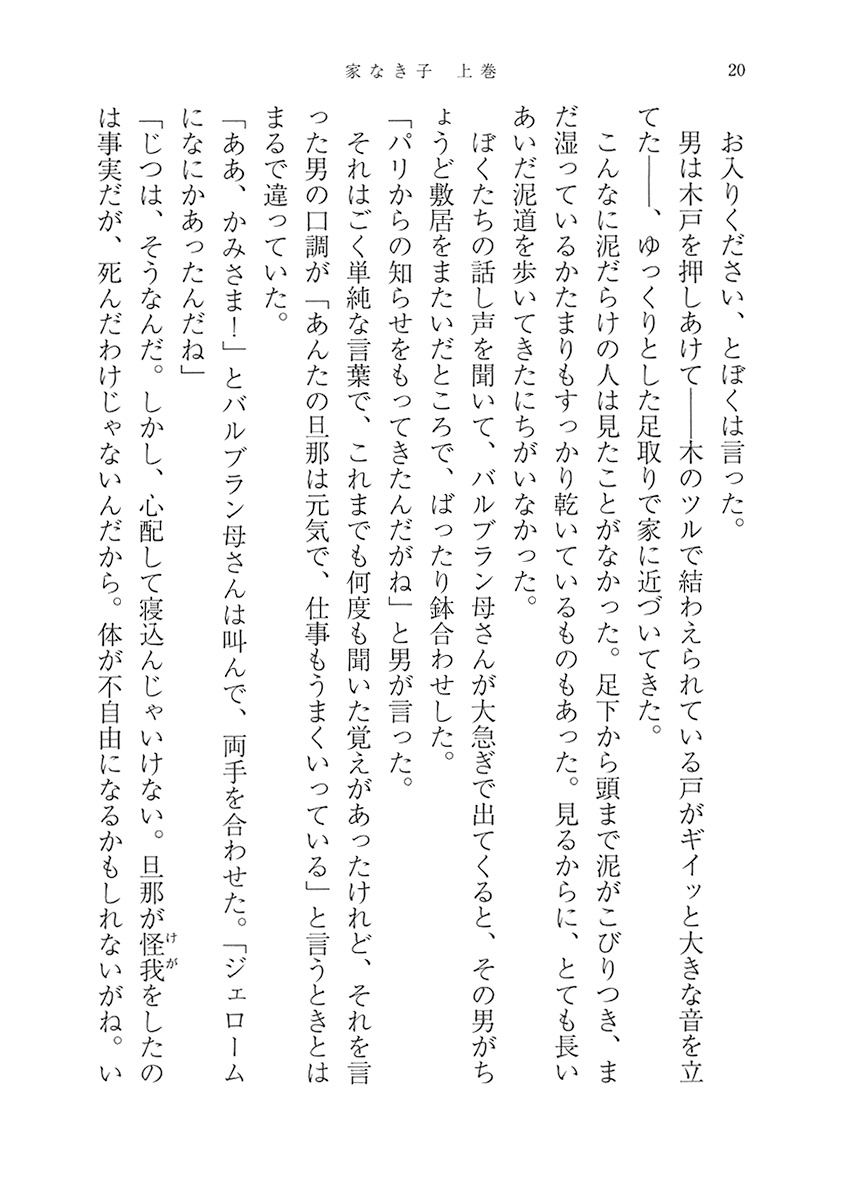 家なき子　上巻
20
お入りください、とぼくは言った。
男は木戸を押しあけて――木のツルで結わえられている戸がギイッと大きな音を立
てた――、ゆっくりとした足取りで家に近づいてきた。
こんなに泥だらけの人は見たことがなかった。足下から頭まで泥がこびりつき、ま
だ湿っているかたまりもすっかり乾いているものもあった。見るからに、とても長い
あいだ泥道を歩いてきたにちがいなかった。
ぼくたちの話し声を聞いて、バルブラン母さんが大急ぎで出てくると、その男がち
ょうど敷居をまたいだところで、ばったり鉢合わせした。
「パリからの知らせをもってきたんだがね」と男が言った。
それはごく単純な言葉で、これまでも何度も聞いた覚えがあったけれど、それを言
った男の口調が「あんたの旦那は元気で、仕事もうまくいっている」と言うときとは
まるで違っていた。
「ああ、かみさま！」とバルブラン母さんは叫んで、両手を合わせた。「ジェローム
になにかあったんだね」
「じつは、そうなんだ。しかし、心配して寝込んじゃいけない。旦那が怪我をしたの
けが
は事実だが、死んだわけじゃないんだから。体が不自由になるかもしれないがね。い